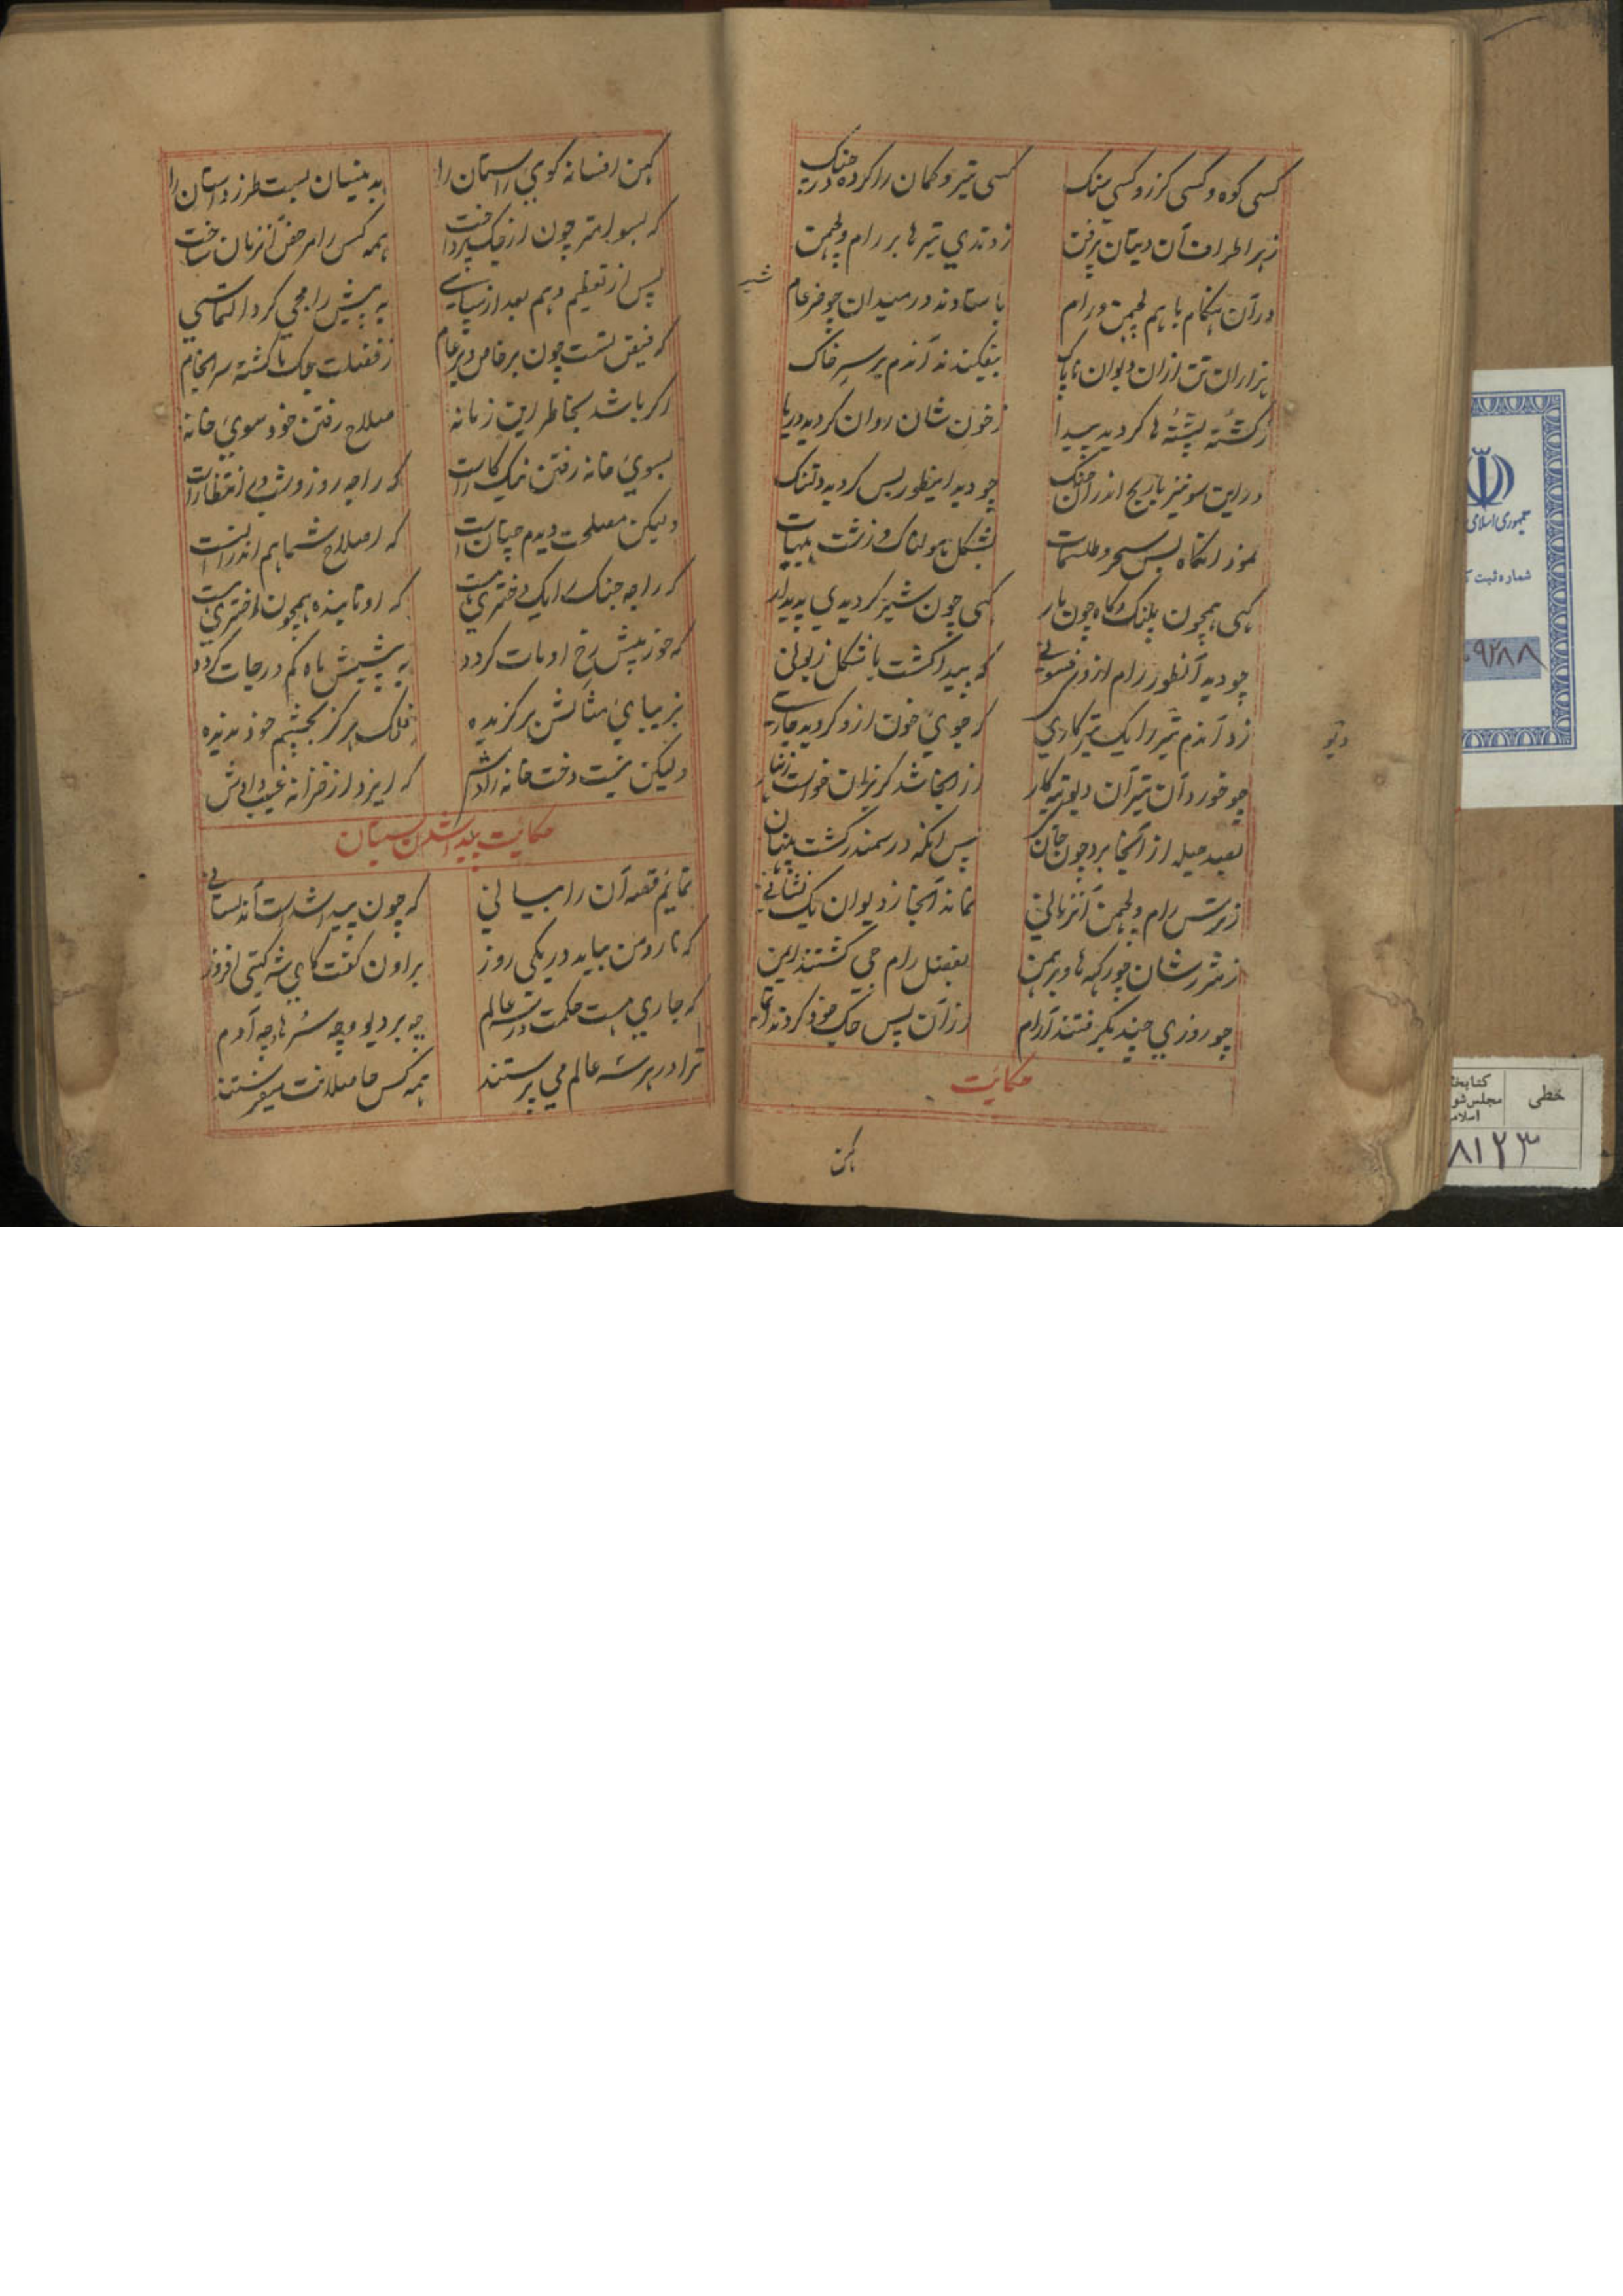 کسی کوه و کسی کرز و کسی سنک کسی تیر و کمان را کرده در جنک
زهر اطراف آن دیتان برفتن زدندی تیرها بر رام و لچمن
در آن هنکام با هم لچمن و رام باستاوند در میدان چو ضرغام
شیر
هزاران تن ازان دیوان ناپاک بیفکندند آندم بر سر خاک
زکشته پشته ها کردید پیدا زخون شان روان کردید دریا
در این سو نیز ماریچ اندران جنک چو دید اینطور بس کردید دلتنک
نمود آنکاه بس سحر و طلسمات بشکل هولناک و زشت هیهات
کهی همچون پلنک و کاه چون مار کهی چون شیر کردیدی پدیدار
چو دید آنطور رام از وی فسونی که پیدا کشت با شکل زبونی
زد آندم تیر را یک تیر کاری که جوی خون ازو کردید جاری
دیو
چو خورد آن تیر آن دیو تبه کار از اینجا شد کریزان خواست زنهار
بصد حیله از آنجا برد چون جان پس آنکه در سمندر کشت پنهان
زترس رام و لچمن آنزمانی نماند آنجا ز دیوان یک نشانی
زشر شان چو رکهه ها و برهمن بفضل رام جی کشتند ایمن
چو روزی چند بکرفتند آرام از آن پس جک خود کردند اتمام
حکایت
کهن
کهن افسانه کوی راستان را بدینسان بست طرز داستان را
که بسوامتر چون از جک بپرداخت همه کس را مرخص آنزمان ساخت
پس از تعظیم و هم بعد از سپاسی به پیش رامجی کرد التماسی
که فیض تست چون بر خاص و بر عام ز فضلت جک ما کشته سرانجام
اکر باشد بخاطر این زمانه صلاح رفتن خود سوی خانه
بسوی خانه رفتن نیک کار است که راجه روز و شب در انتظار است
ولیکن مصلحت دیدم چنان است که اصلاح شما هم اندرانست
که راجه جنک را یک دختری هست که او تابنده همچون اختری هست
که خور پیش رخ او مات کردد به پیشش ماه کم درجات کردد
بزیبایی مثالش برکزیده فلک هرکز بچشم خود ندیده
ولیکن نیست دخت خانه زادش که ایزد از خزانه غیب دادش
حکایت پیدا شدن سیتان
نمایم قصه آن را بیانی که چون پیدا شد است آن دلستانی
که نارومن بیاید در یکی روز براون کفت کای شه کیتی افروز
که جاری هست حکمت در سه عالم چه بر دیو و چه سرها و چه آدم
ترا در هر سه عالم می پرستند همه کس حاصلانت میفرستند
جمهوری اسلامی
شماره ثبت
۹۲۸۸
خطی
کتابخانه
مجلس شورای
اسلامی
۸۱۲۳